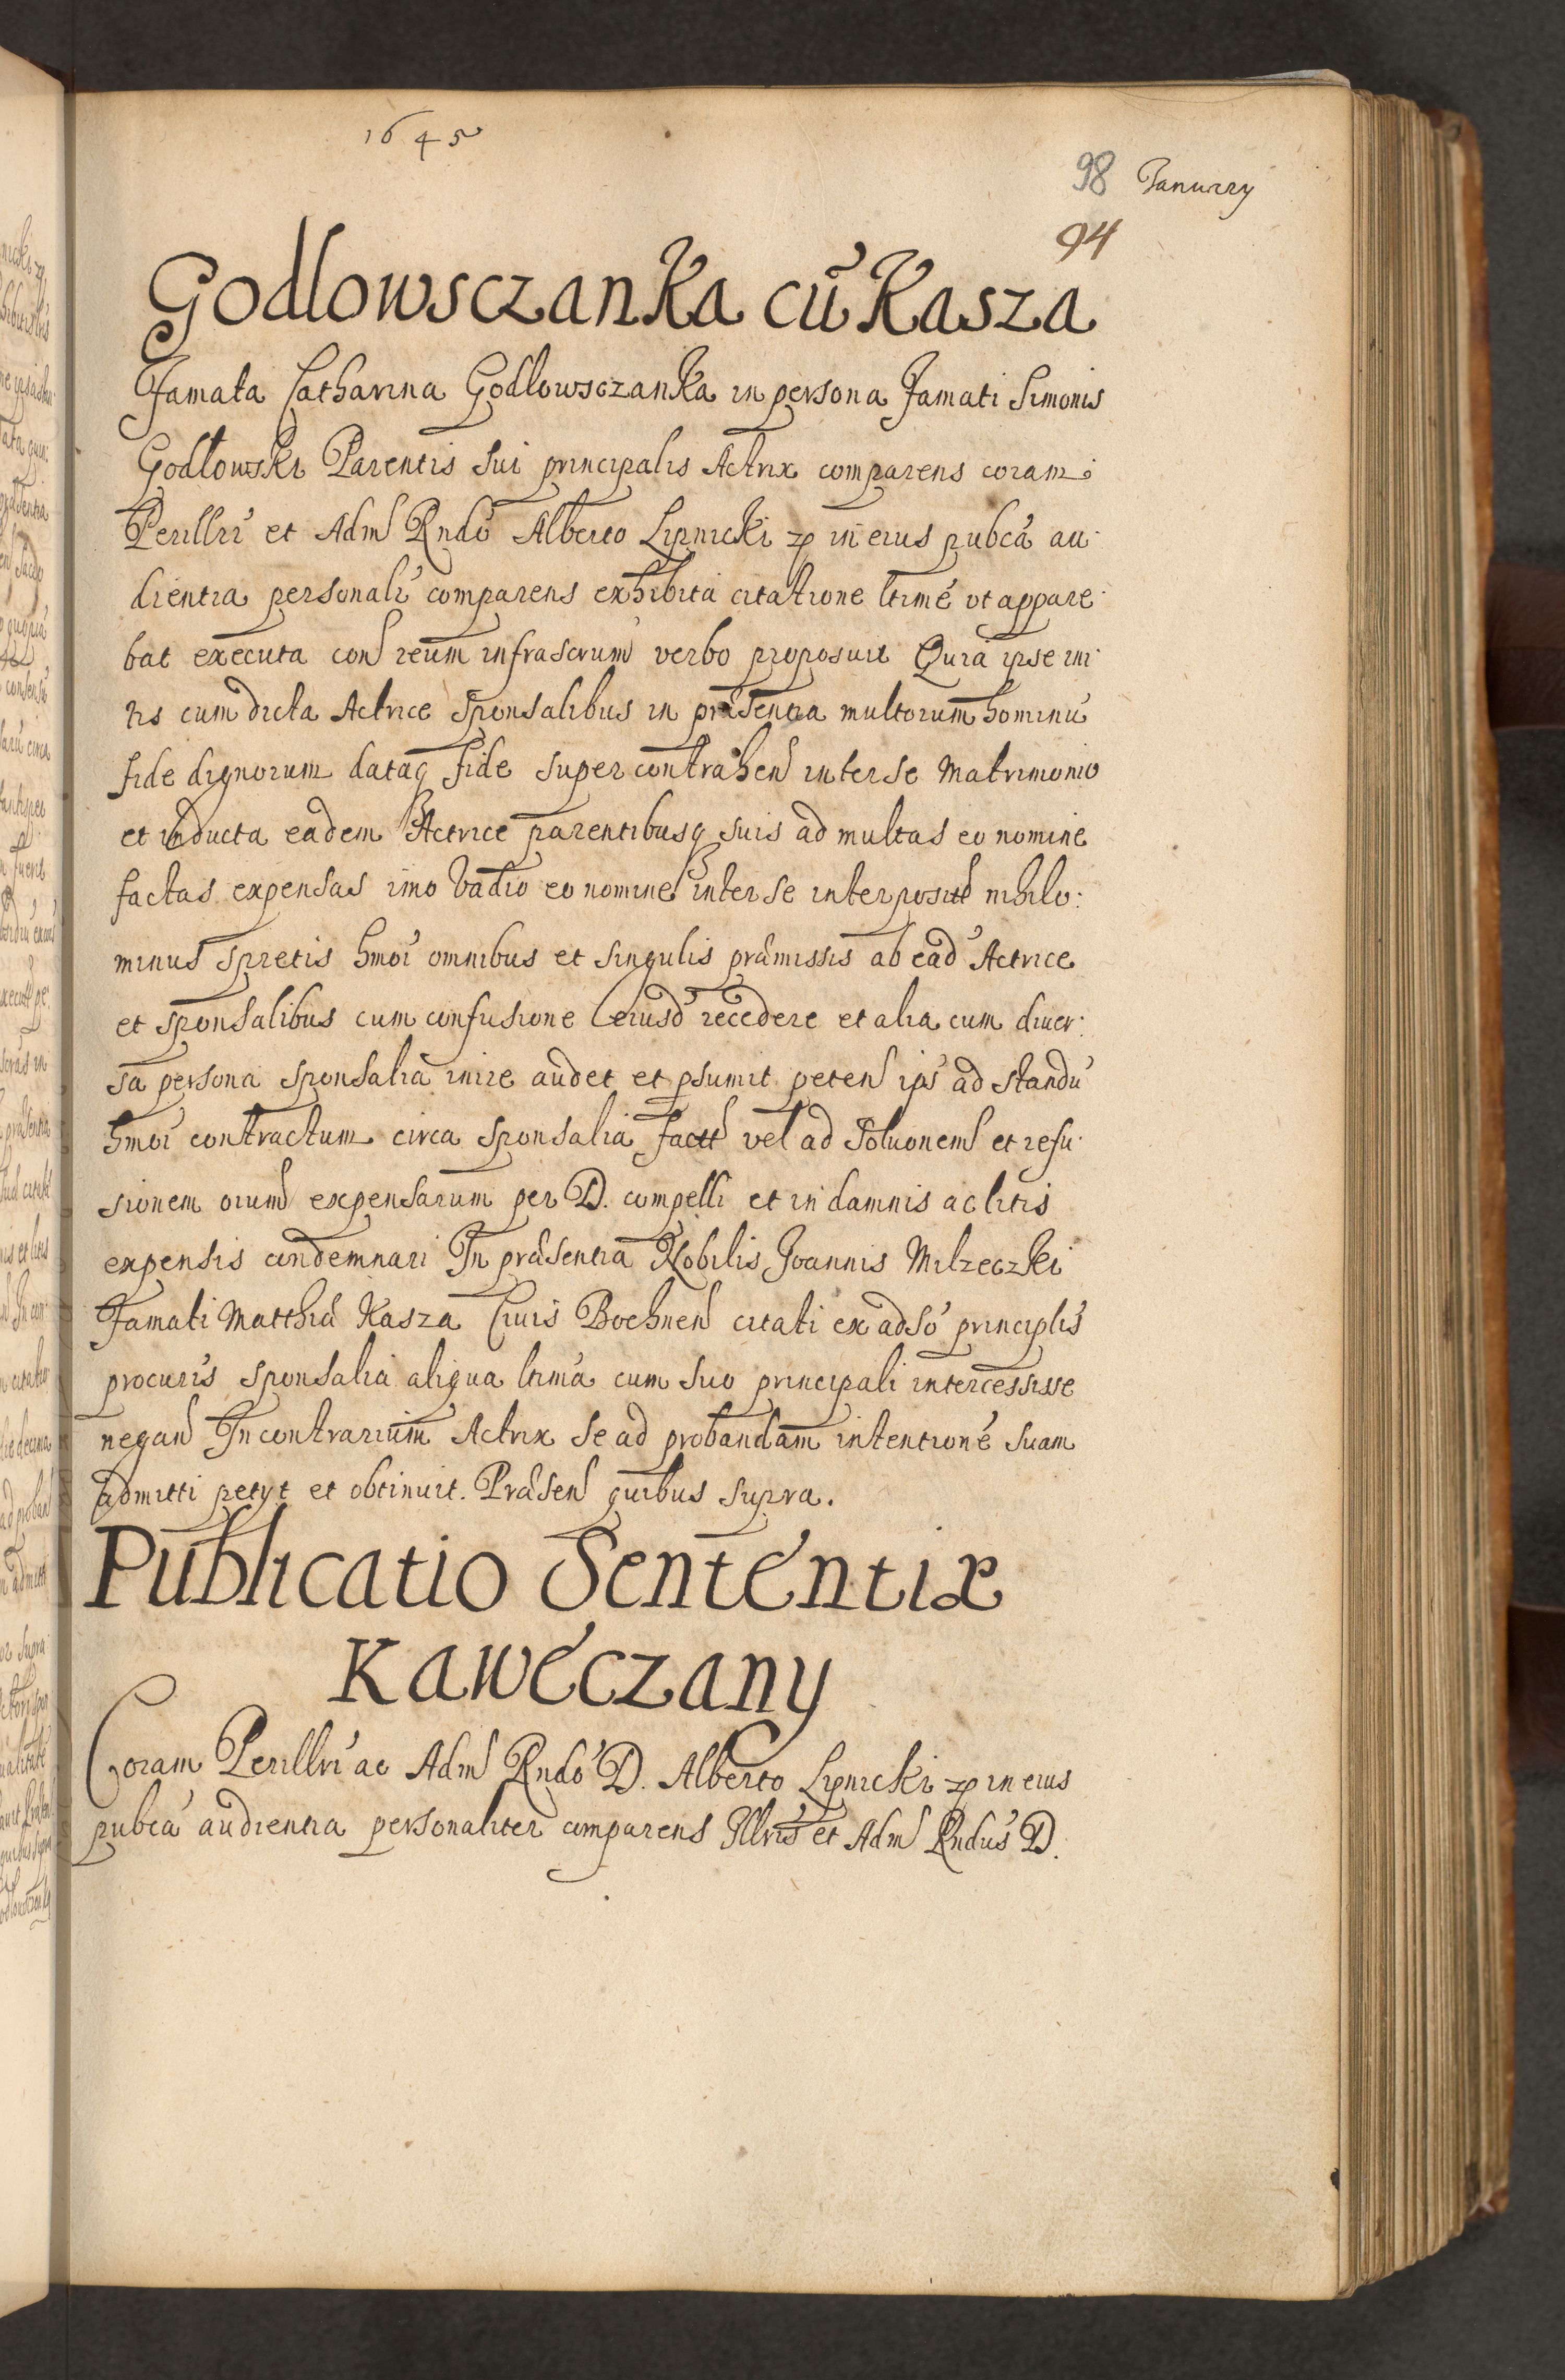 1645
98 January
94
Godlowsczanka cū Kasza
Famata Catharina Godlowsczanka in persona Famati Simonis
Godłowski Parentis sui principalis Actrix comparens coram
Perillri et Adm Rndo Alberto Lipnicki in eius pubca au
dientia personali comparens exhibita citatione ltime ut appare
bat executa con reum infrascrum verbo proposuit Quia ipse ini
tis cum dicta Actrice sponsalibus in præsentia multorum hominu
fide dignorum dataq fide super contrahen inter se Matrimonio
et inducta eadem Actrice parentibusq suis ad multas eo nomine
factas expensas imo Vadio eo nomine inter se interposit nihilo
minus spretis hmoi omnibus et singulis præmissis ab ead Actrice
et sponsalibus cum confusione eiusd recedere et alia cum diver
sa persona sponsalia inire audet et psumit peten ips ad standu
hmoi contractum circa sponsalia factt vel ad soluonem et refu
sionem oium expensarum per D. compelli et in damnis ac litis
expensis condemnari In præsentia Nobilis Joannis Milzeczki
Famati Matthiæ Kasza Ciuis Bochnen citati ex adso principlis
procuris sponsalia aliqua ltima cum suo principali intercessisse
negan In contrarium Actrix se ad probandam intentione suam
admitti petyt et obtinuit. Præsen quibus supra.
Publicatio Sententiæ
Kaweczany
Coram Perillri ac Adm Rndo D. Alberto Lipnicki in eius
pubca audientia personaliter comparens Illris et Adm Rndus D.